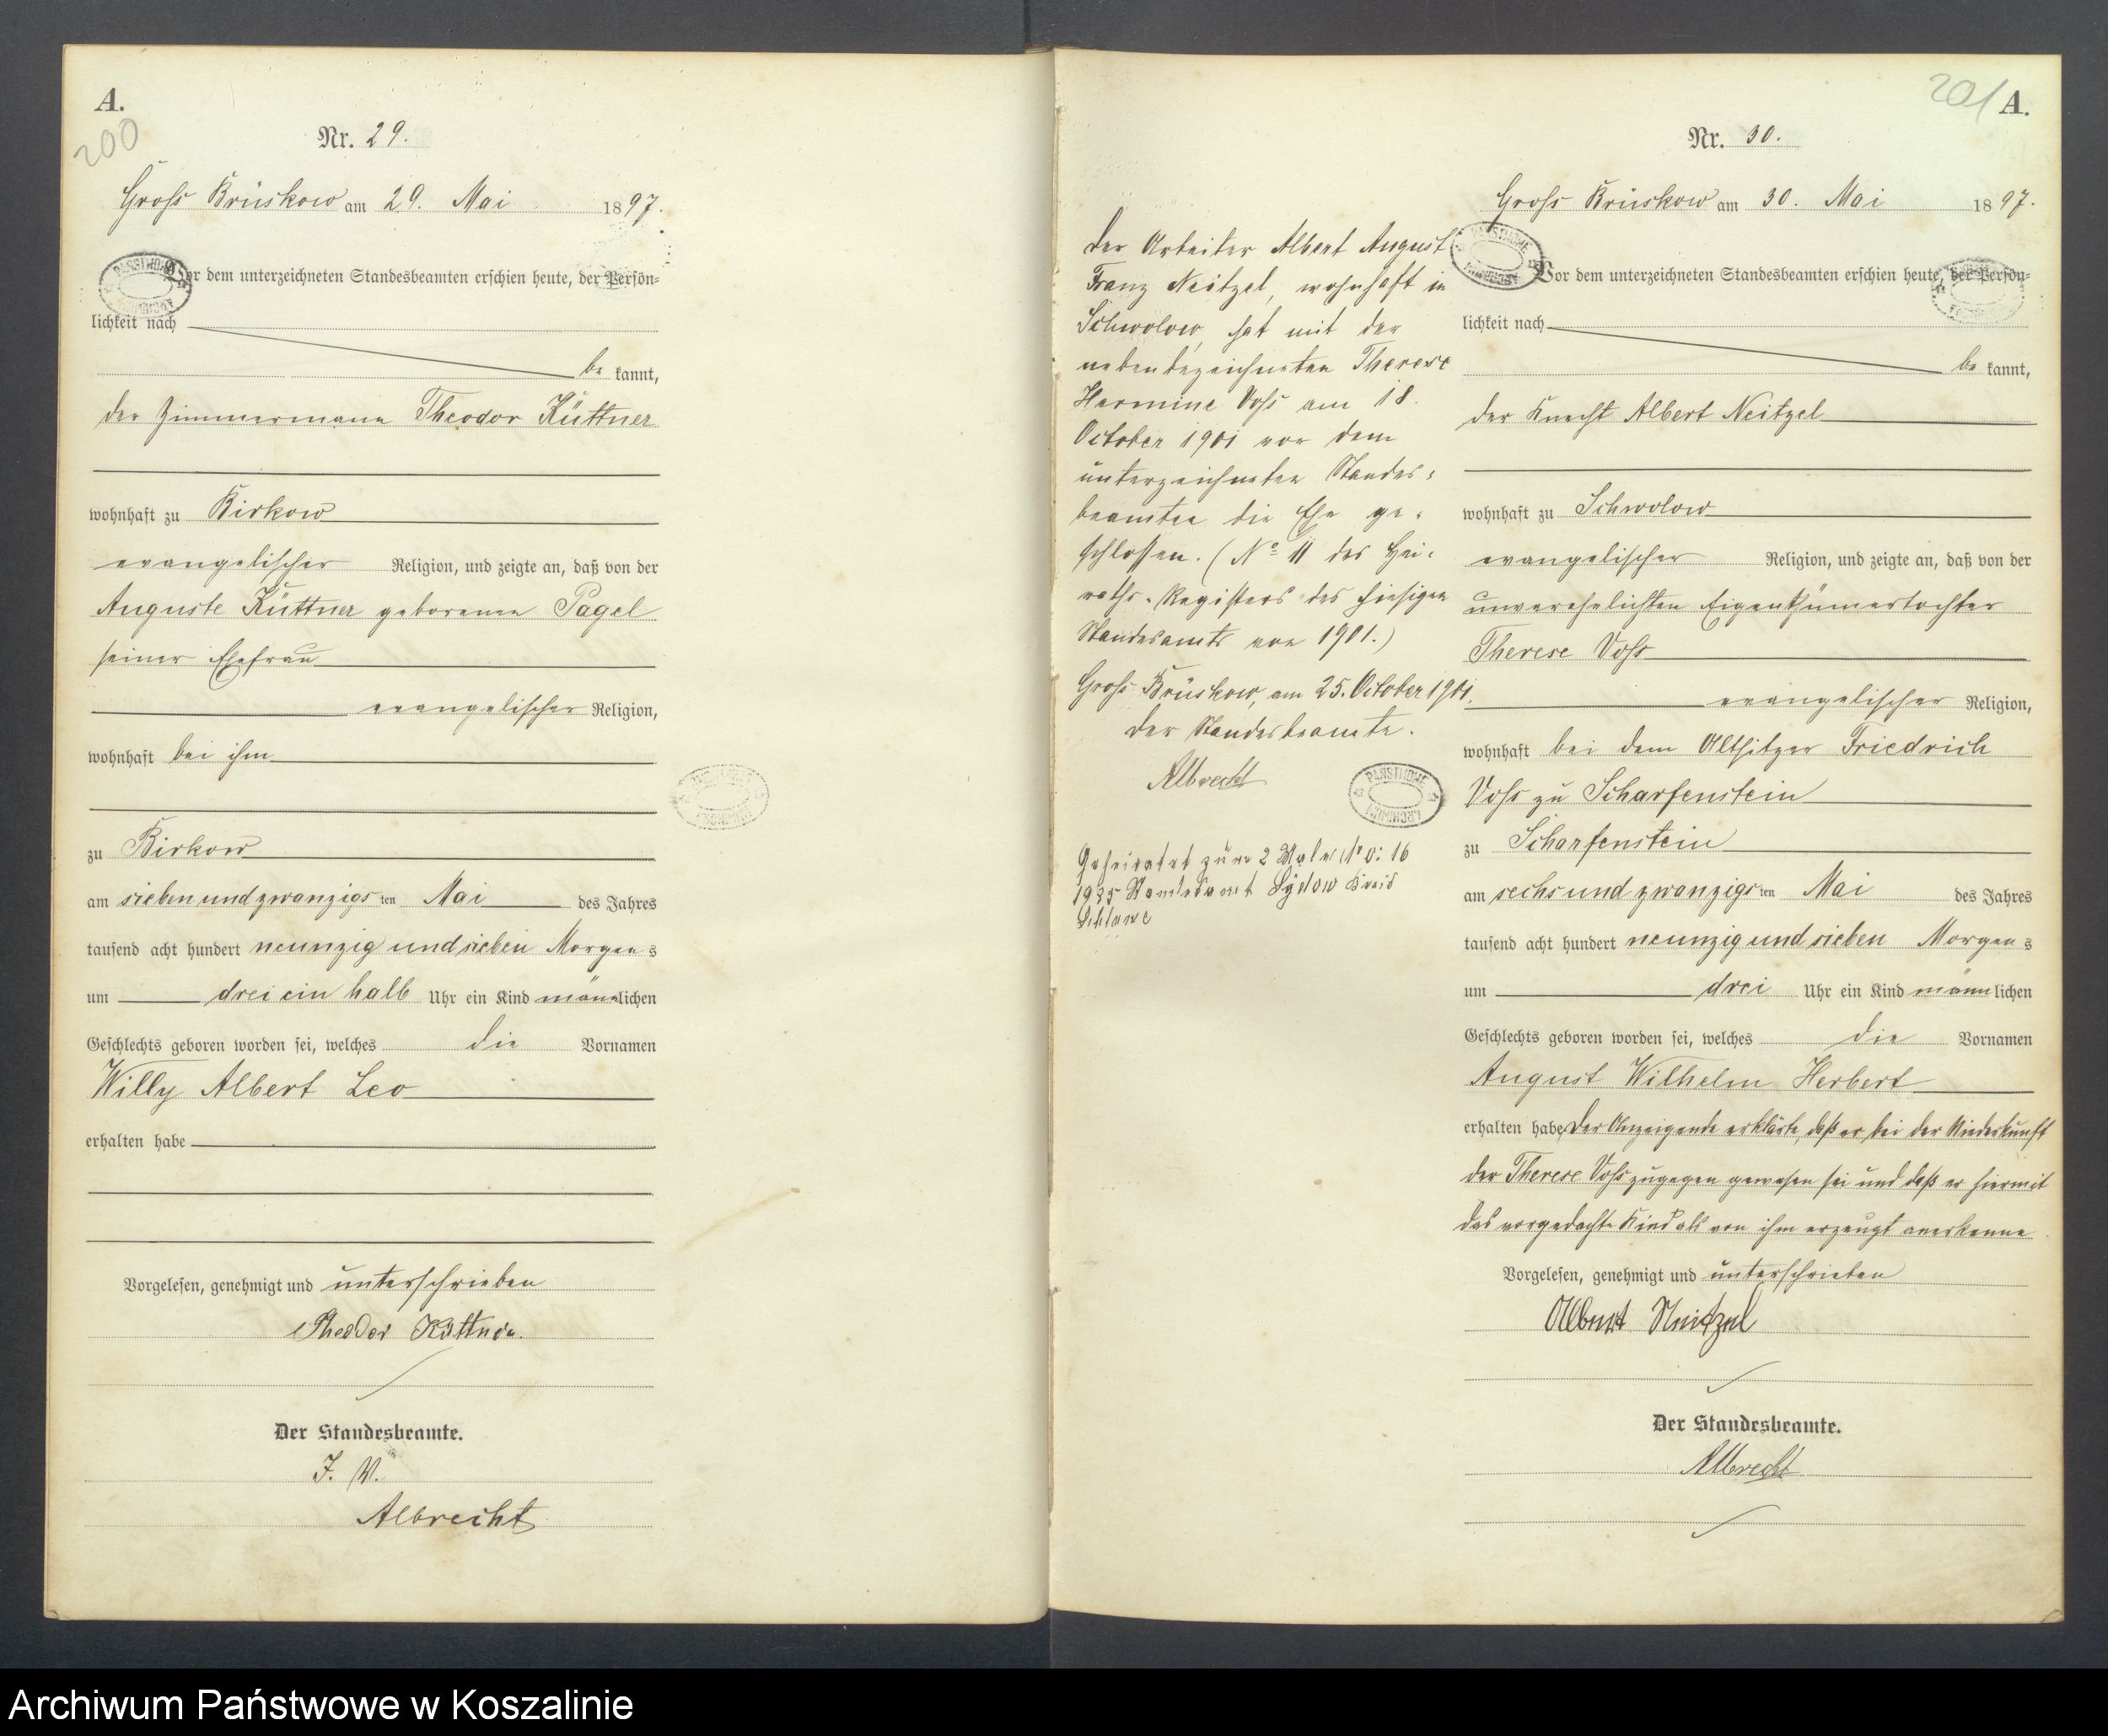 A.
200
Nr. 29.
Gross Brüskow am 29. Mai 1897.
Vor dem unterzeichneten Standesbeamten erschien heute, der Persön=
lichkeit nach
be kannt,
der Zimmermann Theodor Küttner
wohnhaft zu Birkow
evangelischer Religion, und zeigte an, daß von der
Auguste Küttner geborenen Pagel
seiner Ehefrau
evangelischer Religion,
wohnhaft bei ihm
zu Birkow
am sieben und zwanzigs ten Mai des Jahres
tausend acht hundert neunzig und sieben Morgen s
um drei ein halb Uhr ein Kind männlichen
Geschlechts geboren worden sei, welches die Vornamen
Willy Albert Leo
erhalten habe
Vorgelesen, genehmigt und unterschrieben
Theodor Küttner.
Der Standesbeamte.
J. V.
Albrecht
201 A.
Nr. 30.
Gross Brüskow am 30. Mai 1897.
Der Arbeiter Albert August
Franz Neitzel, wohnhaft in
Schwolow, hat mit der
nebenbezeichneten Therese
Hermine Voss am 18.
October 1901 vor dem
unterzeichneten Standes=
beamten die Ehe ge=
schlossen. (No 11 des Hei=
raths-Registers des hiesigen
Standesamts von 1901.)
Gross Brüskow, am 25. October 1901.
Der Standesbeamte.
Albrecht
PAŃSTWOWE ARCHIWUM
Geheiratet zum 2 Male No: 16
1935 Standesamt Sydow Kreis
Schlawe
Vor dem unterzeichneten Standesbeamten erschien heute, der Persön=
lichkeit nach
be kannt,
der Knecht Albert Neitzel
wohnhaft zu Schwolow
evangelischer Religion, und zeigte an, daß von der
unverehelichten Eigenthümertochter
Therese Voss
evangelischer Religion,
wohnhaft bei dem Altsitzer Friedrich
Voss zu Scharfenstein
zu Scharfenstein
am sechs und zwanzigs ten Mai des Jahres
tausend acht hundert neunzig und sieben Morgen s
um drei Uhr ein Kind männlichen
Geschlechts geboren worden sei, welches die Vornamen
August Wilhelm Herbert
erhalten habe Der Anzeigende erklärte, daß er bei der Niederkunft
der Therese Voss zugegen gewesen sei und daß er hiermit
das vorgedachte Kind als von ihm erzeugt anerkenne
Vorgelesen, genehmigt und unterschrieben
Albert Neitzel
Der Standesbeamte.
Albrecht
Archiwum Państwowe w Koszalinie